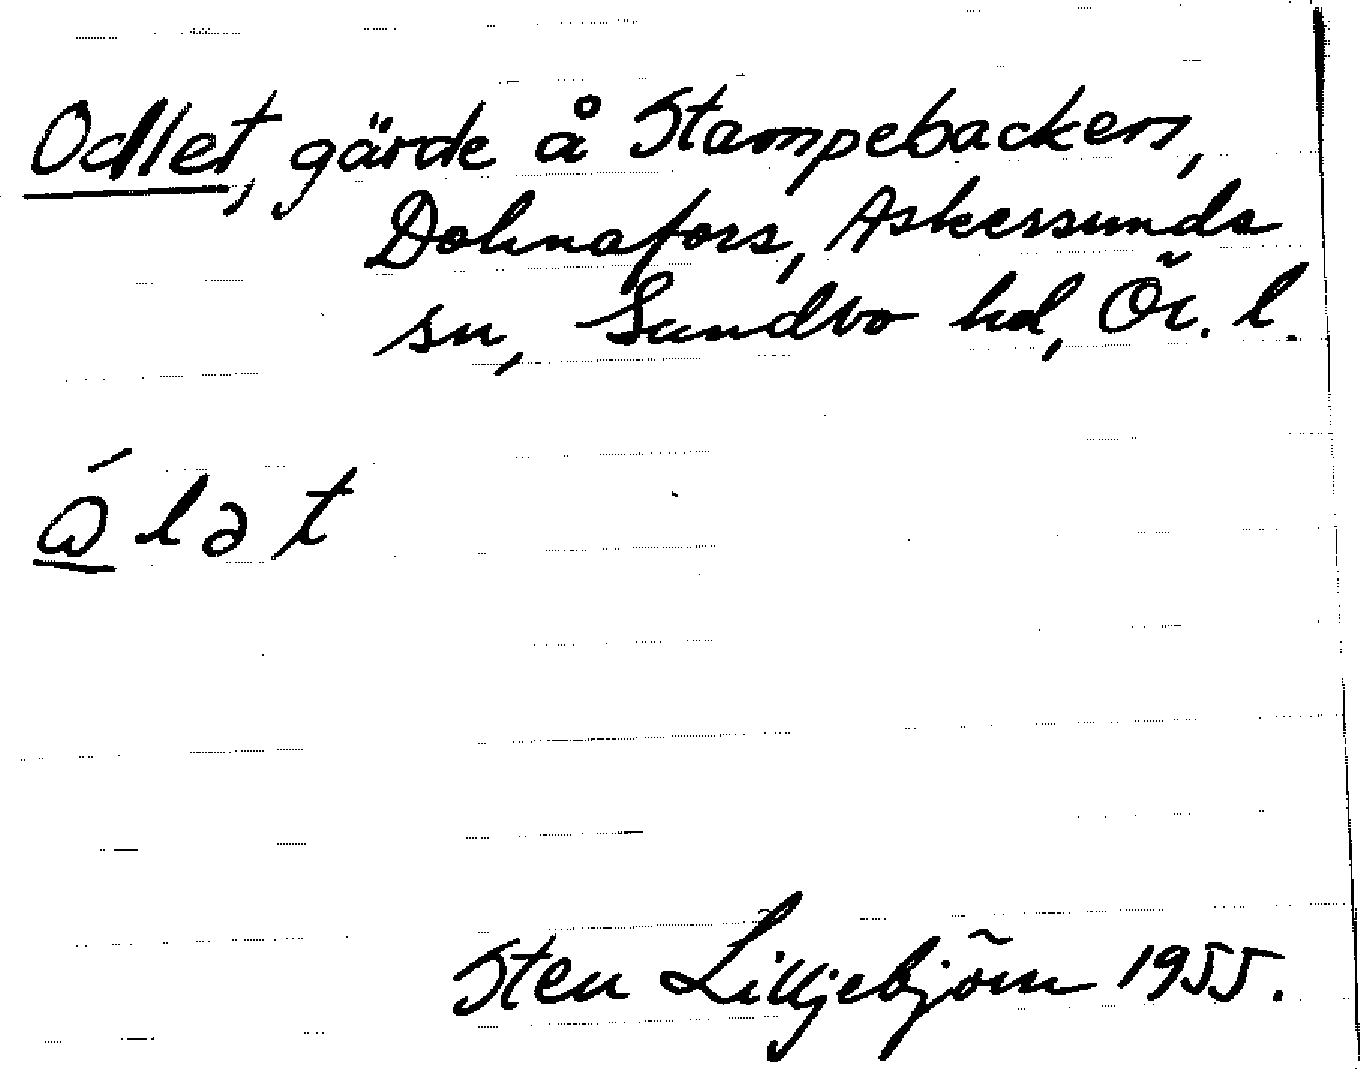 Odlet, gärde å Stampebacken,
Dohnafors, Askersunds
sn, Sundbo hd, Ör. l.
ώ l ə t
Sten Lilljebjörn 1955.